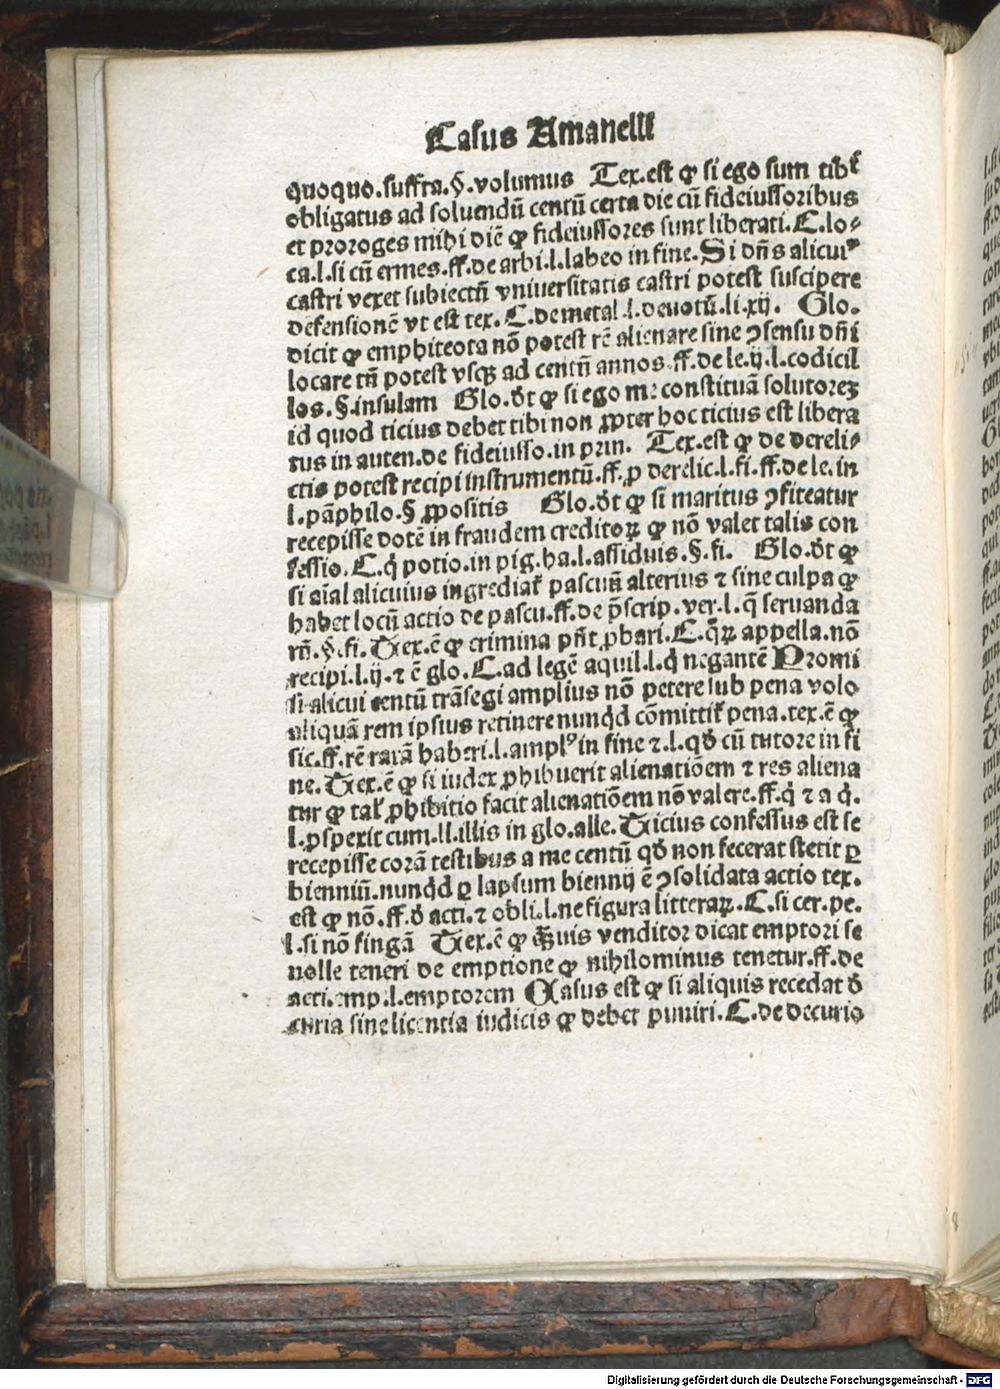 Casus Amanelli
quoquo.suffra.§.volumus Tex.est ꝙ si ego sum tibi
obligatus ad soluendū centū certa die cū fideiussoribus
et proroges mihi diē ꝙ fideiussores sunt liberati.C.lo⸗
ca.l.si cū ermes.ff.de arbi.l.labeo in fine.Si dn̄s alicuiꝰ
castri vexet subiectū vniuersitatis castri potest suscipere
defensionē vt est tex.C.de metal.l.deuotū.li.xij. Glo.
dicit ꝙ emphiteota nō potest rē alienare sine ꝯsensu dn̄i
locare tn̄ potest vsqꝫ ad centū annos.ff.de le.ij.l.codicil
los.§.insulam Glo.dt̄ ꝙ si ego me constituā solutoreꝫ
id quod ticius debet tibi non ꝓpter hoc ticius est libera
tus in auten.de fideiusso.in prin. Tex.est ꝙ de dereli⸗
ctis potest recipi instrumentū.ff.ꝓ derelic.l.fi.ff.de le.in
l.pāphilo.§ ꝓpositis Glo.dt̄ ꝙ si maritus ꝯfiteatur
recepisse dotē in fraudem creditoꝝ ꝙ nō valet talis con
fessio.C.q̇ potio.in pig.ha.l.assiduis.§.fi. Glo.dt̄ ꝙ
si aial alicuius ingrediat᷑ pascuū alterius ⁊ sine culpa ꝙ
habet locū actio de pascu.ff.de p̄scrip.ver.l.q̄ seruanda
rn̄.§.fi.Tex.ē ꝙ crimina pn̄t ꝓbari.C.q̄ꝝ appella.nō
recipi.l.ij.⁊ ē glo.C.ad legē aquil.l.q̇ negantē Promi
si alicui centū trāsegi amplius nō petere sub pena volo
aliquā rem ipsius retinere nunqd cōmittit᷑ pena.tex.ē ꝙ
sic.ff.rē ratā haberi.l.amplꝰ in fine ⁊.l.qḋ cū tutore in fi
ne.Tex.ē ꝙ si iudex ꝓhibuerit alienatiōem ⁊ res aliena
tur ꝙ tal᷑ ꝓhibitio facit alienatiōem nō valere.ff.q̇ ⁊ a q̇.
l.ꝓsperit cum.ll.illis in glo.alle.Ticius confessus est se
recepisse corā testibus a me centū qḋ non fecerat stetit ꝑ
bienniū.nunqd ꝑ lapsum biennij ē ꝯsolidata actio tex.
est ꝙ nō.ff.ḋ acti.⁊ obli.l.ne figura litteraꝝ.C.si cer.pe.
l.si nō singā Tex.ē ꝙ qᷓuis venditor dicat emptori se
nolle teneri de emptione ꝙ nihilominus tenetur.ff.de
acti.emp.l.emptorem Casus est ꝙ si aliquis recedat ḋ
curia sine licentia iudicis ꝙ debet puniri.C.de decurio
Digitalisierung gefördert durch die Deutsche Forschungsgemeinschaft - DFG